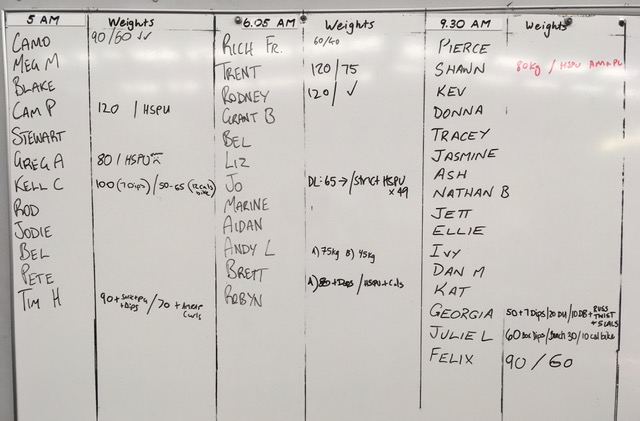 5 AM Weights
CAMO 90/60 ✓✓
MEG M
BLAKE
CAM P 120 / HSPU
STEWART
GREG A 80 / HSPU
KELL C 100 (7 Dips) / 50-65 (12 cals bike)
ROD
JODIE
BEL
PETE
TIM H 90 + + Dips / 70 + Curls
6.05 AM Weights
RICH FR. 60/40
TRENT 120/75
RODNEY 120/ ✓
GRANT B
BEL
LIZ
JO DL: 65 → / Strict HSPU x 49
MARINE
AIDAN
ANDY L A) 75kg B) 45kg
BRETT A) 80 + Dips / HSPU + Cals
ROBYN
9.30 AM Weights
PIERCE
SHAWN 80kg / HSPU AMRAP
KEV
DONNA
TRACEY
JASMINE
ASH
NATHAN B
JETT
ELLIE
IVY
DAN M
KAT
GEORGIA 50 + 7 Dips / 20 DU / 10 DB + RUSS TWIST + 5 CALS
JULIE L 60 Box Dips / 30 / 10 cal bike
FELIX 90 / 60